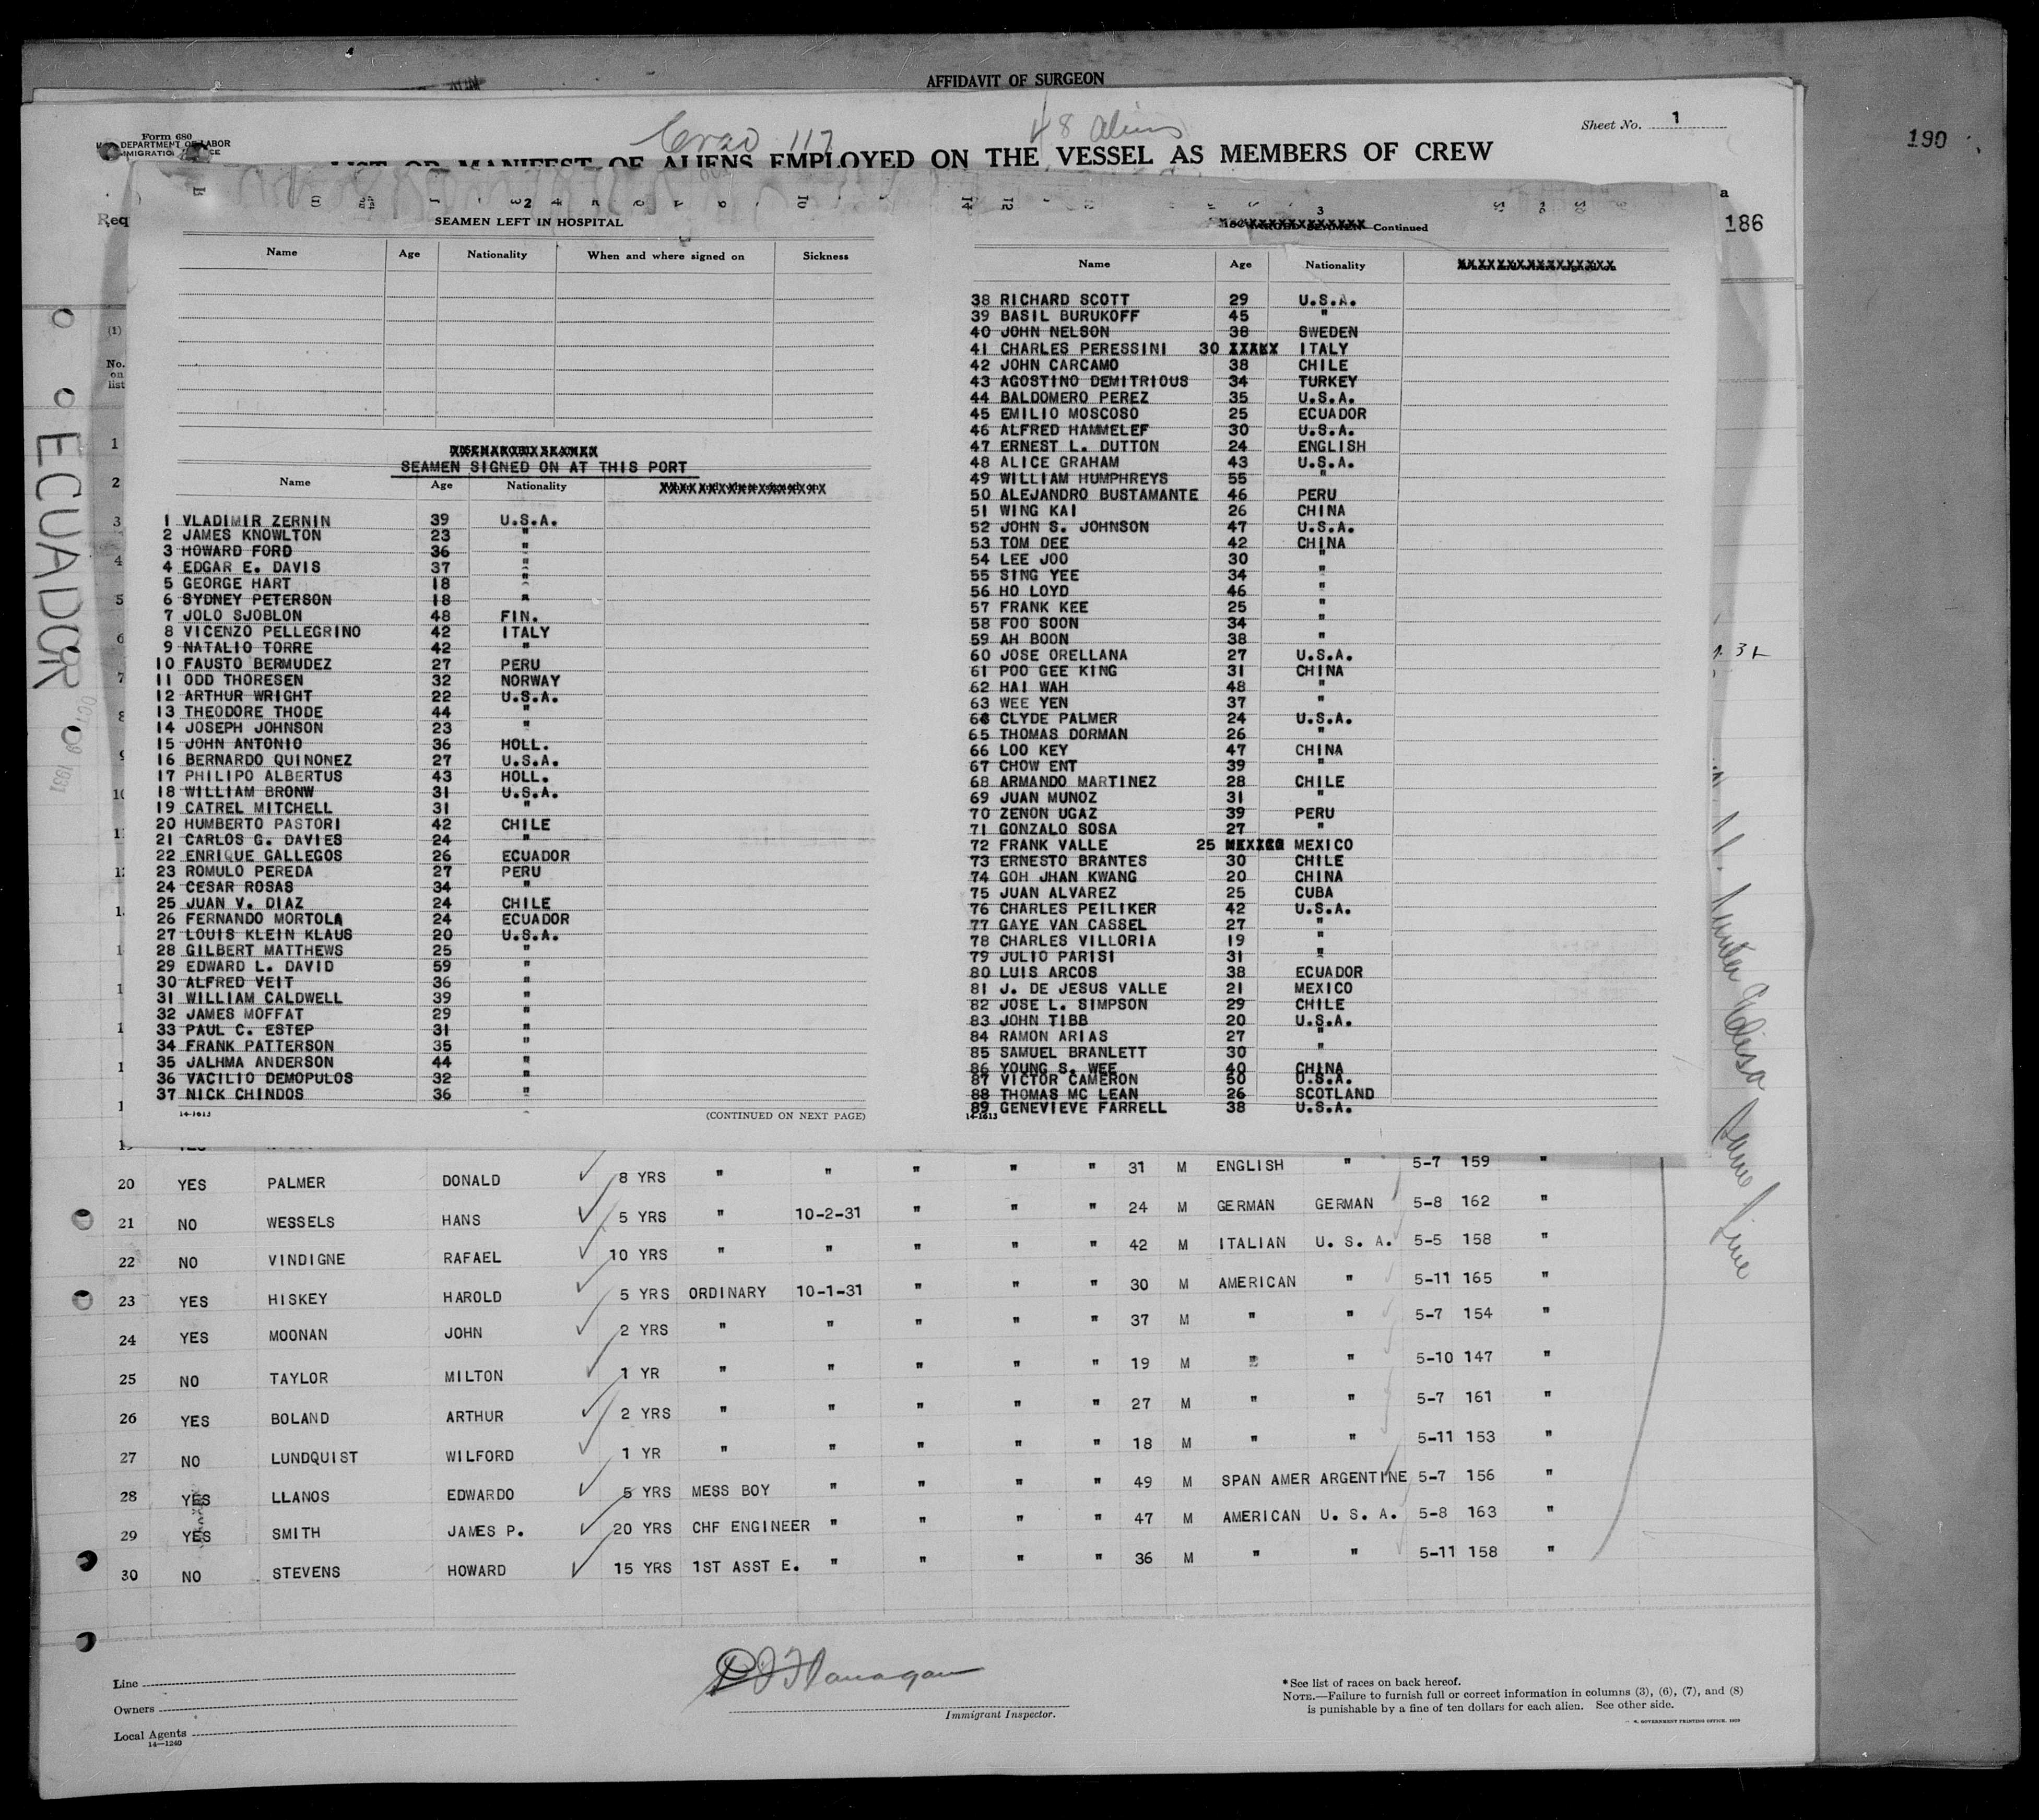 AFFIDAVIT OF SURGEON
190
Crao 117
48 aliens
Sheet No. 1
Form 680
DEPARTMENT OF LABOR
LIST OR MANIFEST OF ALIENS EMPLOYED ON THE VESSEL AS MEMBERS OF CREW
Req
a
186
(1)
No. on list
ECUADOR
2
SEAMEN LEFT IN HOSPITAL
Name Age Nationality When and where signed on Sickness
SEAMEN SIGNED ON AT THIS PORT
Name Age Nationality
1 VLADIMIR ZERNIN 39 U.S.A.
2 JAMES KNOWLTON 23 "
3 HOWARD FORD 36 "
4 EDGAR E. DAVIS 37 "
5 GEORGE HART 18 "
6 SYDNEY PETERSON 18 "
7 JOLO SJOBLON 48 FIN.
8 VICENZO PELLEGRINO 42 ITALY
9 NATALIO TORRE 42 "
10 FAUSTO BERMUDEZ 27 PERU
11 ODD THORESEN 32 NORWAY
12 ARTHUR WRIGHT 22 U.S.A.
13 THEODORE THODE 44 "
14 JOSEPH JOHNSON 23 "
15 JOHN ANTONIO 36 HOLL.
16 BERNARDO QUINONEZ 27 U.S.A.
17 PHILIPO ALBERTUS 43 HOLL.
18 WILLIAM BRONW 31 U.S.A.
19 CATREL MITCHELL 31 "
20 HUMBERTO PASTORI 42 CHILE
21 CARLOS G. DAVIES 24 "
22 ENRIQUE GALLEGOS 26 ECUADOR
23 ROMULO PEREDA 27 PERU
24 CESAR ROSAS 34 "
25 JUAN V. DIAZ 24 CHILE
26 FERNANDO MORTOLA 24 ECUADOR
27 LOUIS KLEIN KLAUS 20 U.S.A.
28 GILBERT MATTHEWS 25 "
29 EDWARD L. DAVID 59 "
30 ALFRED VEIT 36 "
31 WILLIAM CALDWELL 39 "
32 JAMES MOFFAT 29 "
33 PAUL C. ESTEP 31 "
34 FRANK PATTERSON 35 "
35 JALHMA ANDERSON 44 "
36 VACILIO DEMOPULOS 32 "
37 NICK CHINDOS 36 "
14-1613
(CONTINUED ON NEXT PAGE)
3
Continued
Name Age Nationality
38 RICHARD SCOTT 29 U.S.A.
39 BASIL BURUKOFF 45 "
40 JOHN NELSON 38 SWEDEN
41 CHARLES PERESSINI 30 XXXXX ITALY
42 JOHN CARCAMO 38 CHILE
43 AGOSTINO DEMITRIOUS 34 TURKEY
44 BALDOMERO PEREZ 35 U.S.A.
45 EMILIO MOSCOSO 25 ECUADOR
46 ALFRED HAMMELEF 30 U.S.A.
47 ERNEST L. DUTTON 24 ENGLISH
48 ALICE GRAHAM 43 U.S.A.
49 WILLIAM HUMPHREYS 55 "
50 ALEJANDRO BUSTAMANTE 46 PERU
51 WING KAI 26 CHINA
52 JOHN S. JOHNSON 47 U.S.A.
53 TOM DEE 42 CHINA
54 LEE JOO 30 "
55 SING YEE 34 "
56 HO LOYD 46 "
57 FRANK KEE 25 "
58 FOO SOON 34 "
59 AH BOON 38 "
60 JOSE ORELLANA 27 U.S.A.
61 POO GEE KING 31 CHINA
62 HAI WAH 48 "
63 WEE YEN 37 "
64 CLYDE PALMER 24 U.S.A.
65 THOMAS DORMAN 26 "
66 LOO KEY 47 CHINA
67 CHOW ENT 39 "
68 ARMANDO MARTINEZ 28 CHILE
69 JUAN MUNOZ 31 "
70 ZENON UGAZ 39 PERU
71 GONZALO SOSA 27 "
72 FRANK VALLE 25 MEXICO
73 ERNESTO BRANTES 30 CHILE
74 GOH JHAN KWANG 20 CHINA
75 JUAN ALVAREZ 25 CUBA
76 CHARLES PEILIKER 42 U.S.A.
77 GAYE VAN CASSEL 27 "
78 CHARLES VILLORIA 19 "
79 JULIO PARISI 31 "
80 LUIS ARCOS 38 ECUADOR
81 J. DE JESUS VALLE 21 MEXICO
82 JOSE L. SIMPSON 29 CHILE
83 JOHN TIBB 20 U.S.A.
84 RAMON ARIAS 27 "
85 SAMUEL BRANLETT 30 "
86 YOUNG S. WEE 40 CHINA
87 VICTOR CAMERON 50 U.S.A.
88 THOMAS MC LEAN 26 SCOTLAND
89 GENEVIEVE FARRELL 38 U.S.A.
14-1613
20 YES PALMER DONALD 8 YRS " " " " " 31 M ENGLISH " 5-7 159 "
21 NO WESSELS HANS 5 YRS " 10-2-31 " " " 24 M GERMAN GERMAN 5-8 162 "
22 NO VINDIGNE RAFAEL 10 YRS " " " " " 42 M ITALIAN U. S. A. 5-5 158 "
23 YES HISKEY HAROLD 5 YRS ORDINARY 10-1-31 " " " 30 M AMERICAN " 5-11 165 "
24 YES MOONAN JOHN 2 YRS " " " " " 37 M " " 5-7 154 "
25 NO TAYLOR MILTON 1 YR " " " " " 19 M " " 5-10 147 "
26 YES BOLAND ARTHUR 2 YRS " " " " " 27 M " " 5-7 161 "
27 NO LUNDQUIST WILFORD 1 YR " " " " " 18 M " " 5-11 153 "
28 YES LLANOS EDWARDO 5 YRS MESS BOY " " " " 49 M SPAN AMER ARGENTINE 5-7 156 "
29 YES SMITH JAMES P. 20 YRS CHF ENGINEER " " " " 47 M AMERICAN U. S. A. 5-8 163 "
30 NO STEVENS HOWARD 15 YRS 1ST ASST E. " " " " 36 M " " 5-11 158 "
Line
Owners
Local Agents
14-1240
Flanagan
Immigrant Inspector.
*See list of races on back hereof.
NOTE.—Failure to furnish full or correct information in columns (3), (6), (7), and (8)
is punishable by a fine of ten dollars for each alien. See other side.